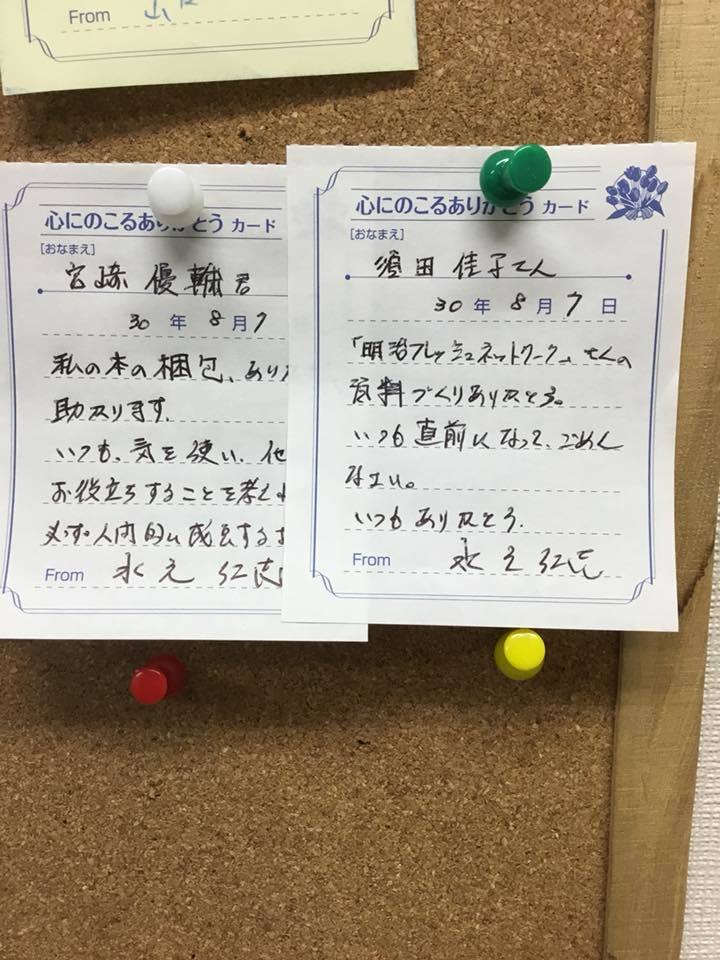 From 山
心にのこるありがとう カード
[おなまえ]
宮崎 優輔君
30 年 8 月 7
私の本の梱包、あり
助かります。
いつも、気を使い、他
お役立ちすることを考え
必ず人間的に成長するま
From
心にのこるありがとう カード
[おなまえ]
須田 佳子さん
30 年 8 月 7 日
「明治フレッシュネットワーク」さんの
資料づくりありがとう。
いつも直前になって、ごめん
なさい。
いつもありがとう。
From